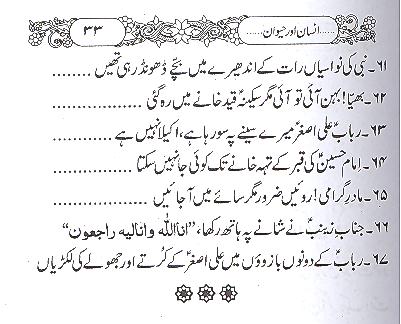 ......انسان اور حیوان......
۳۳
۶۱۔ نبی کی نواسیاں رات کے اندھیرے میں بچّے ڈھونڈ رہی تھیں ..........
۶۲۔ بھیّا! بہن آئی تو آئی مگر سکینہؑ قید خانے میں رہ گئی ....................
۶۳۔ ربابؑ علی اصغرؑ میرے سینے پہ سو رہا ہے، اکیلا نہیں ہے ..........
۶۴۔ امام حسینؑ کی قبر کے تہہ خانے تک کوئی جا نہیں سکتا ................
۶۵۔ مادرِ گرامی! روئیں ضرور مگر سائے میں آ جائیں ....................
۶۶۔ جنابِ زینبؑ نے شانے پہ ہاتھ رکھا، ”اناللہ وانالیه راجعون“
۶۷۔ ربابؑ کے دونوں بازوؤں میں علی اصغرؑ کے کُرتے اور جھولے کی لکڑیاں